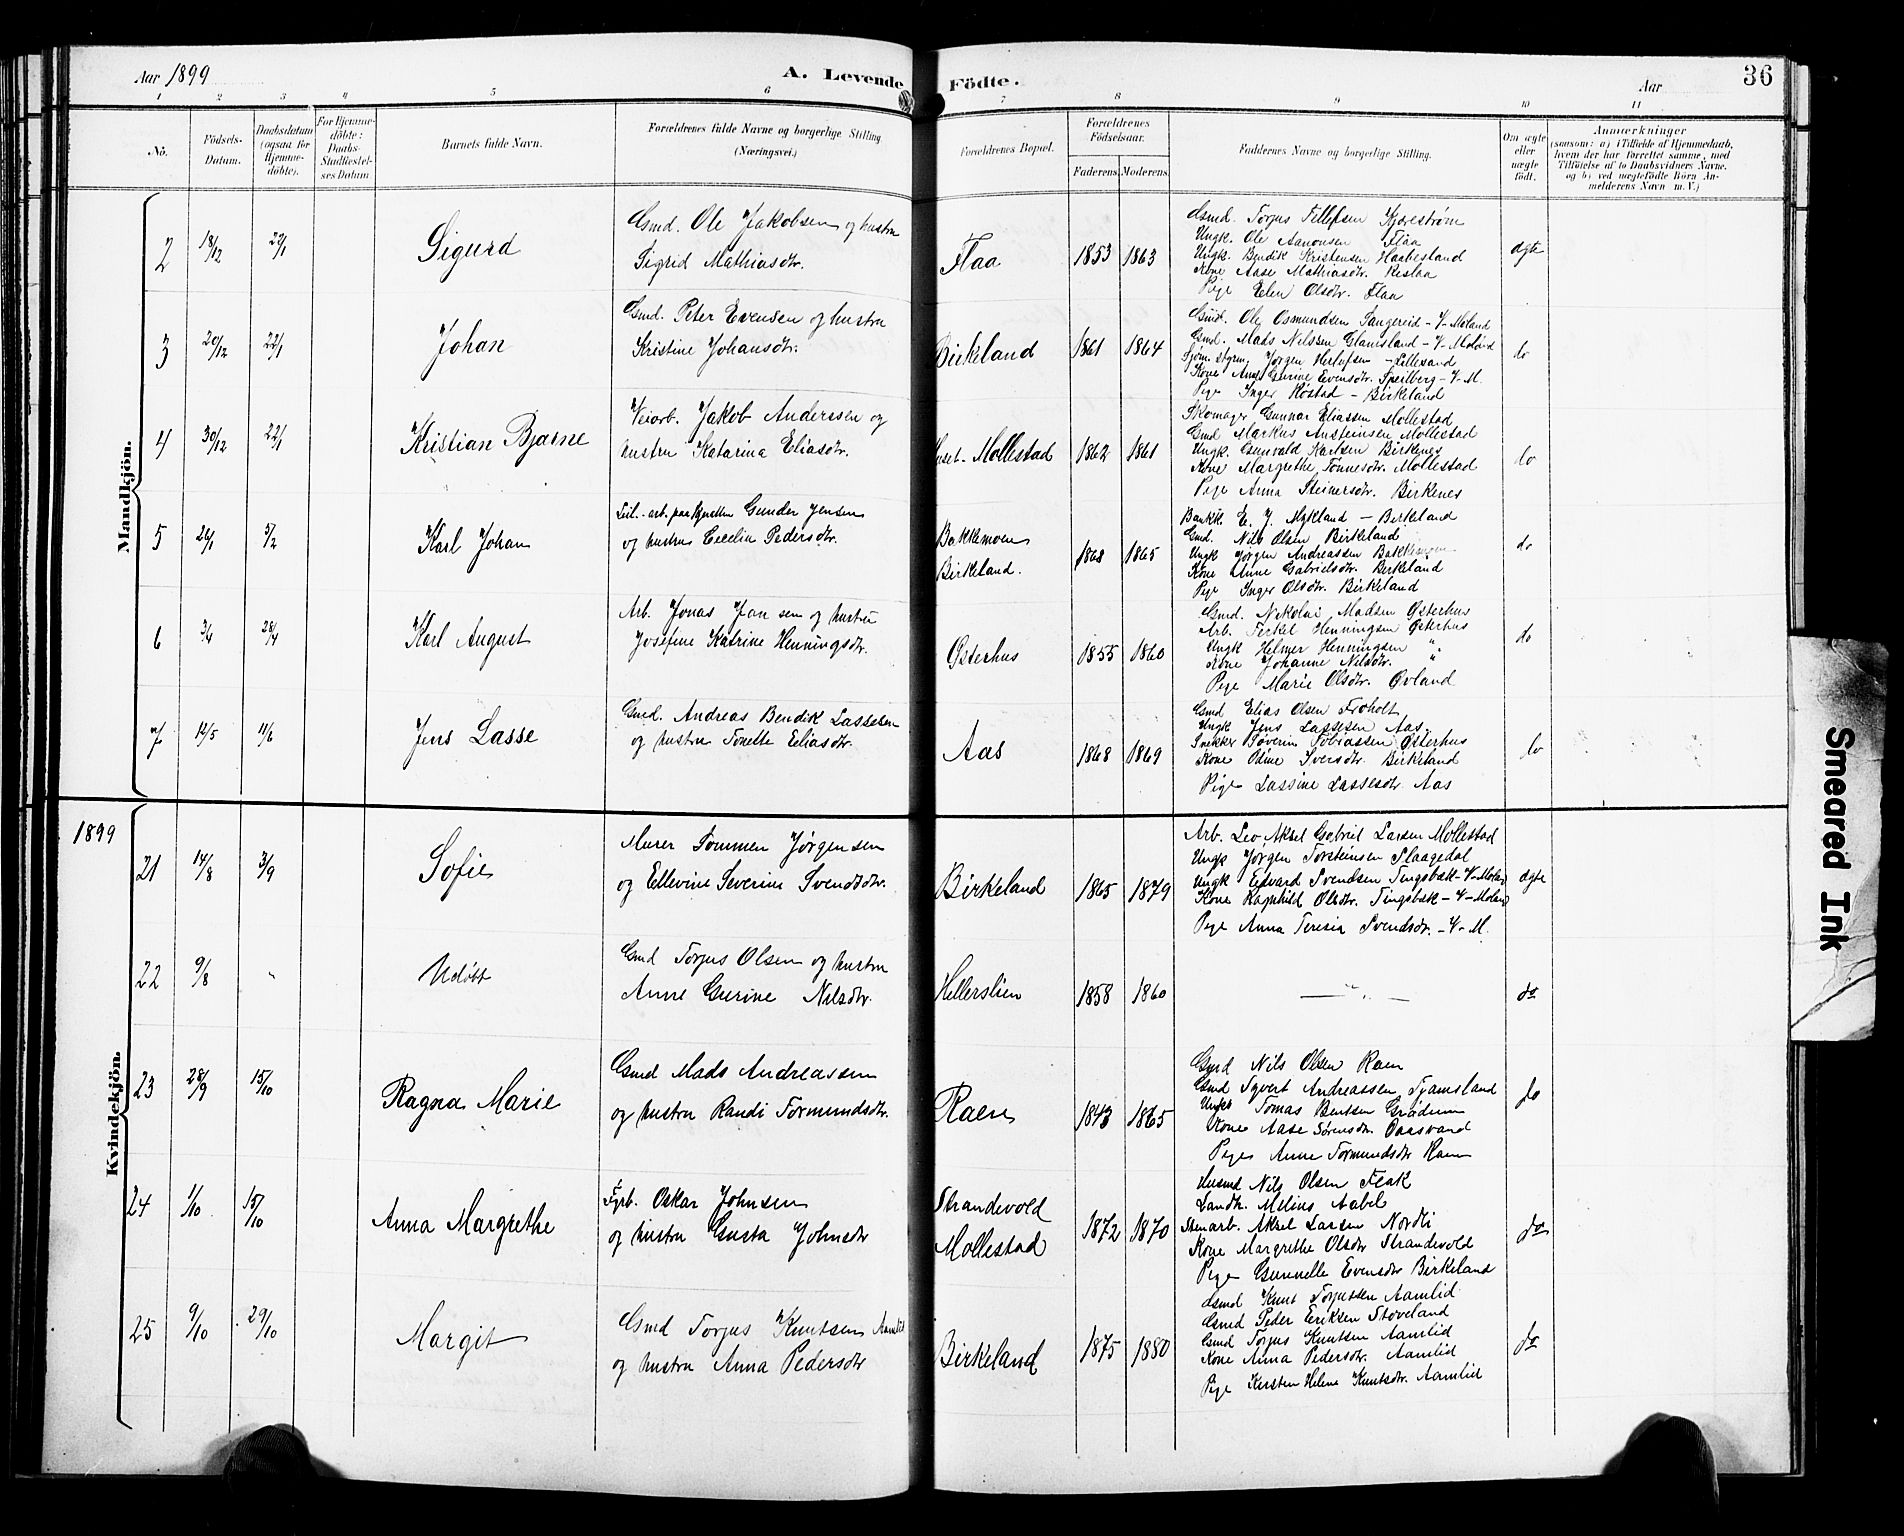 Aar 1899
A. Levende Födte.
Aar
36
1 2 3 4 5 6 7 8 9 10 11
No.
Födsels-Datum.
Daabsdatum (ogsaa for Hjemme-döbte).
For Hjemme-döbte: Daabs-Stadfæstel-ses Datum
Barnets fulde Navn.
Forældrenes fulde Navne og borgerlige Stilling (Næringsvei.)
Forældrenes Bopæl.
Forældrenes Födselsaar.
Faderens. Moderens.
Faddernes Navne og borgerlige Stilling.
Om ægte eller uægte født.
Anmærkninger
(saasom: a) i Tilfælde af Hjemmedaab, hvem der har forrettet samme, med Tilföielse af to Daabsvidners Navne. og b) ved uægtefödte Börn An-melderens Navn m. V.)
Mandkjön.
2 18/12 22/1 Sigurd
Gmd. Ole Jakobsen og hustru
Sigrid Mathiasdtr.
Flaa 1853 1863
Gmd. Torjus Tellefsen Kjærestrøm
Ungk. Ole Aanonsen Flaa
Ungk. Bendik Kristensen Haabesland
Kone Aase Mathiasdtr. Røslaa
Pige Elen Olsdtr. Flaa
ægte
3 20/12 22/1 Johan
Gmd. Peter Evensen og hustru
Kristine Johansdtr.
Birkeland 1861 1864
Gmd. Ole Osmundsen Tangereid - V-Moland
Gmd. Mads Nilssen Glamsland - V-Moland
Sjøm. styrm. Jørgen Herlofsen - Lillesand
Kone Anne Gurine Evensdtr. Speilberg - V. M.
Pige Inger Røstad - Birkeland
do
4 30/12 22/1 Kristian Bjarne
Veiarb. Jakob Anderssen og
hustru Katarina Eliasdtr.
Huset. Mollestad 1862 1861
Skomager Gunnar Eliassen Mollestad
Gmd Markus Ansteinsen Mollestad
Ungk. Gunvald Karlsen Birkenes
Kone Margrethe Tønnesdtr. Mollestad
Pige Anna Steinersdtr. Birkenes
do
5 26/1 5/2 Karl Johan
arb. paa Gunder Jensen
og hustru Cecelia Pedersdtr.
Bakkemoen
Birkeland. 1868 1865
Bankk. E. J. Mykland - Birkeland
Gmd. Nils Olsen Birkeland
Ungk Jørgen Andreassen Bakkemoen
Kone Anne Gabrielsdtr. Birkeland
Pige Inger Olsdtr. Birkeland
do
6 3/4 28/4 Karl August
Arb. Jonas Jansen og hustru
Josefine Katrine Henningsdtr.
Østerhus 1855 1860
Gmd. Nikolai Madsen Østerhus
Arb. Terkel Henningsen Østerhus
Ungk Helmer Henningsen "
Kone Johanne Nilsdtr. "
Pige Marie Olsdtr. Øvland
do
7 14/5 11/6 Jens Lasse
Gmd. Andreas Bendik Lassesen
og hustru Tonette Eliasdtr.
Aas 1868 1869
Gmd Elias Olsen Froholt
Ungk Jens Lassesen Aas.
Snekker Søverin Tobiassen Østerhus
Kone Odine Iversdtr. Birkeland
Pige Lassine Lassesdtr. Aas
do
1899
Kvindekjön.
21 14/8 3/9 Sofie
Murer Tommen Jørgensen
og Ellevine Severine Svendsdtr.
Birkeland 1865 1879
Arb. Leo, Aksel Gabriel Larsen Mollestad
Ungk Jørgen Torsteinsen Flaagedal
Ungk Edvard Svendsen Tingsbæk - V-Moland
Kone Ragnhild Olsdtr. Tingsbæk - V-Moland
Pige Anna Teresia Svendsdtr. - V. M.
ægte
22 9/8 " Udøbt
Gmd Torjus Olsen og hustru
Anne Gurine Nilsdtr.
Hellerslien 1858 1860
— " . —
do
23 28/9 15/10 Ragna Marie
Gmd Mads Andreassen
og hustru Randi Tormundsdtr.
Raen 1843 1865
Gmd Nils Olsen Raen
Gmd Syvert Andreassen Tjamsland
Ungk Tomas Bentsen Grødum
Kone Aase Sørensdtr. Oggsvand
Pige Anne Tormundsdtr Raen
do
24 1/10 15/10 Anna Margrethe
Fyrb. Oskar Johnsen
og hustru Gusta Johnsdtr
Strandevold
Mollestad 1872 1870
Husmd Nils Olsen Flak
Landh. Milius Aabel
Stenarb. Aksel Larsen Nordli
Kone Margrethe Olsdtr Strandevold
Pige Gunnelle Evensdtr Birkeland
do
25 9/10 29/10 Margit
Gmd Torjus Knutsen Aamlid
og hustru Anna Pedersdtr
Birkeland 1875 1880
Gmd Knut Torjussen Aamlid
Gmd Peder Eriksen Støveland
Gmd Torjus Knutsen Aamlid
Kone Anna Pedersdtr. Aamlid
Pige Kirsten Helene Knutsdtr. Aamlid
do
Smeared Ink